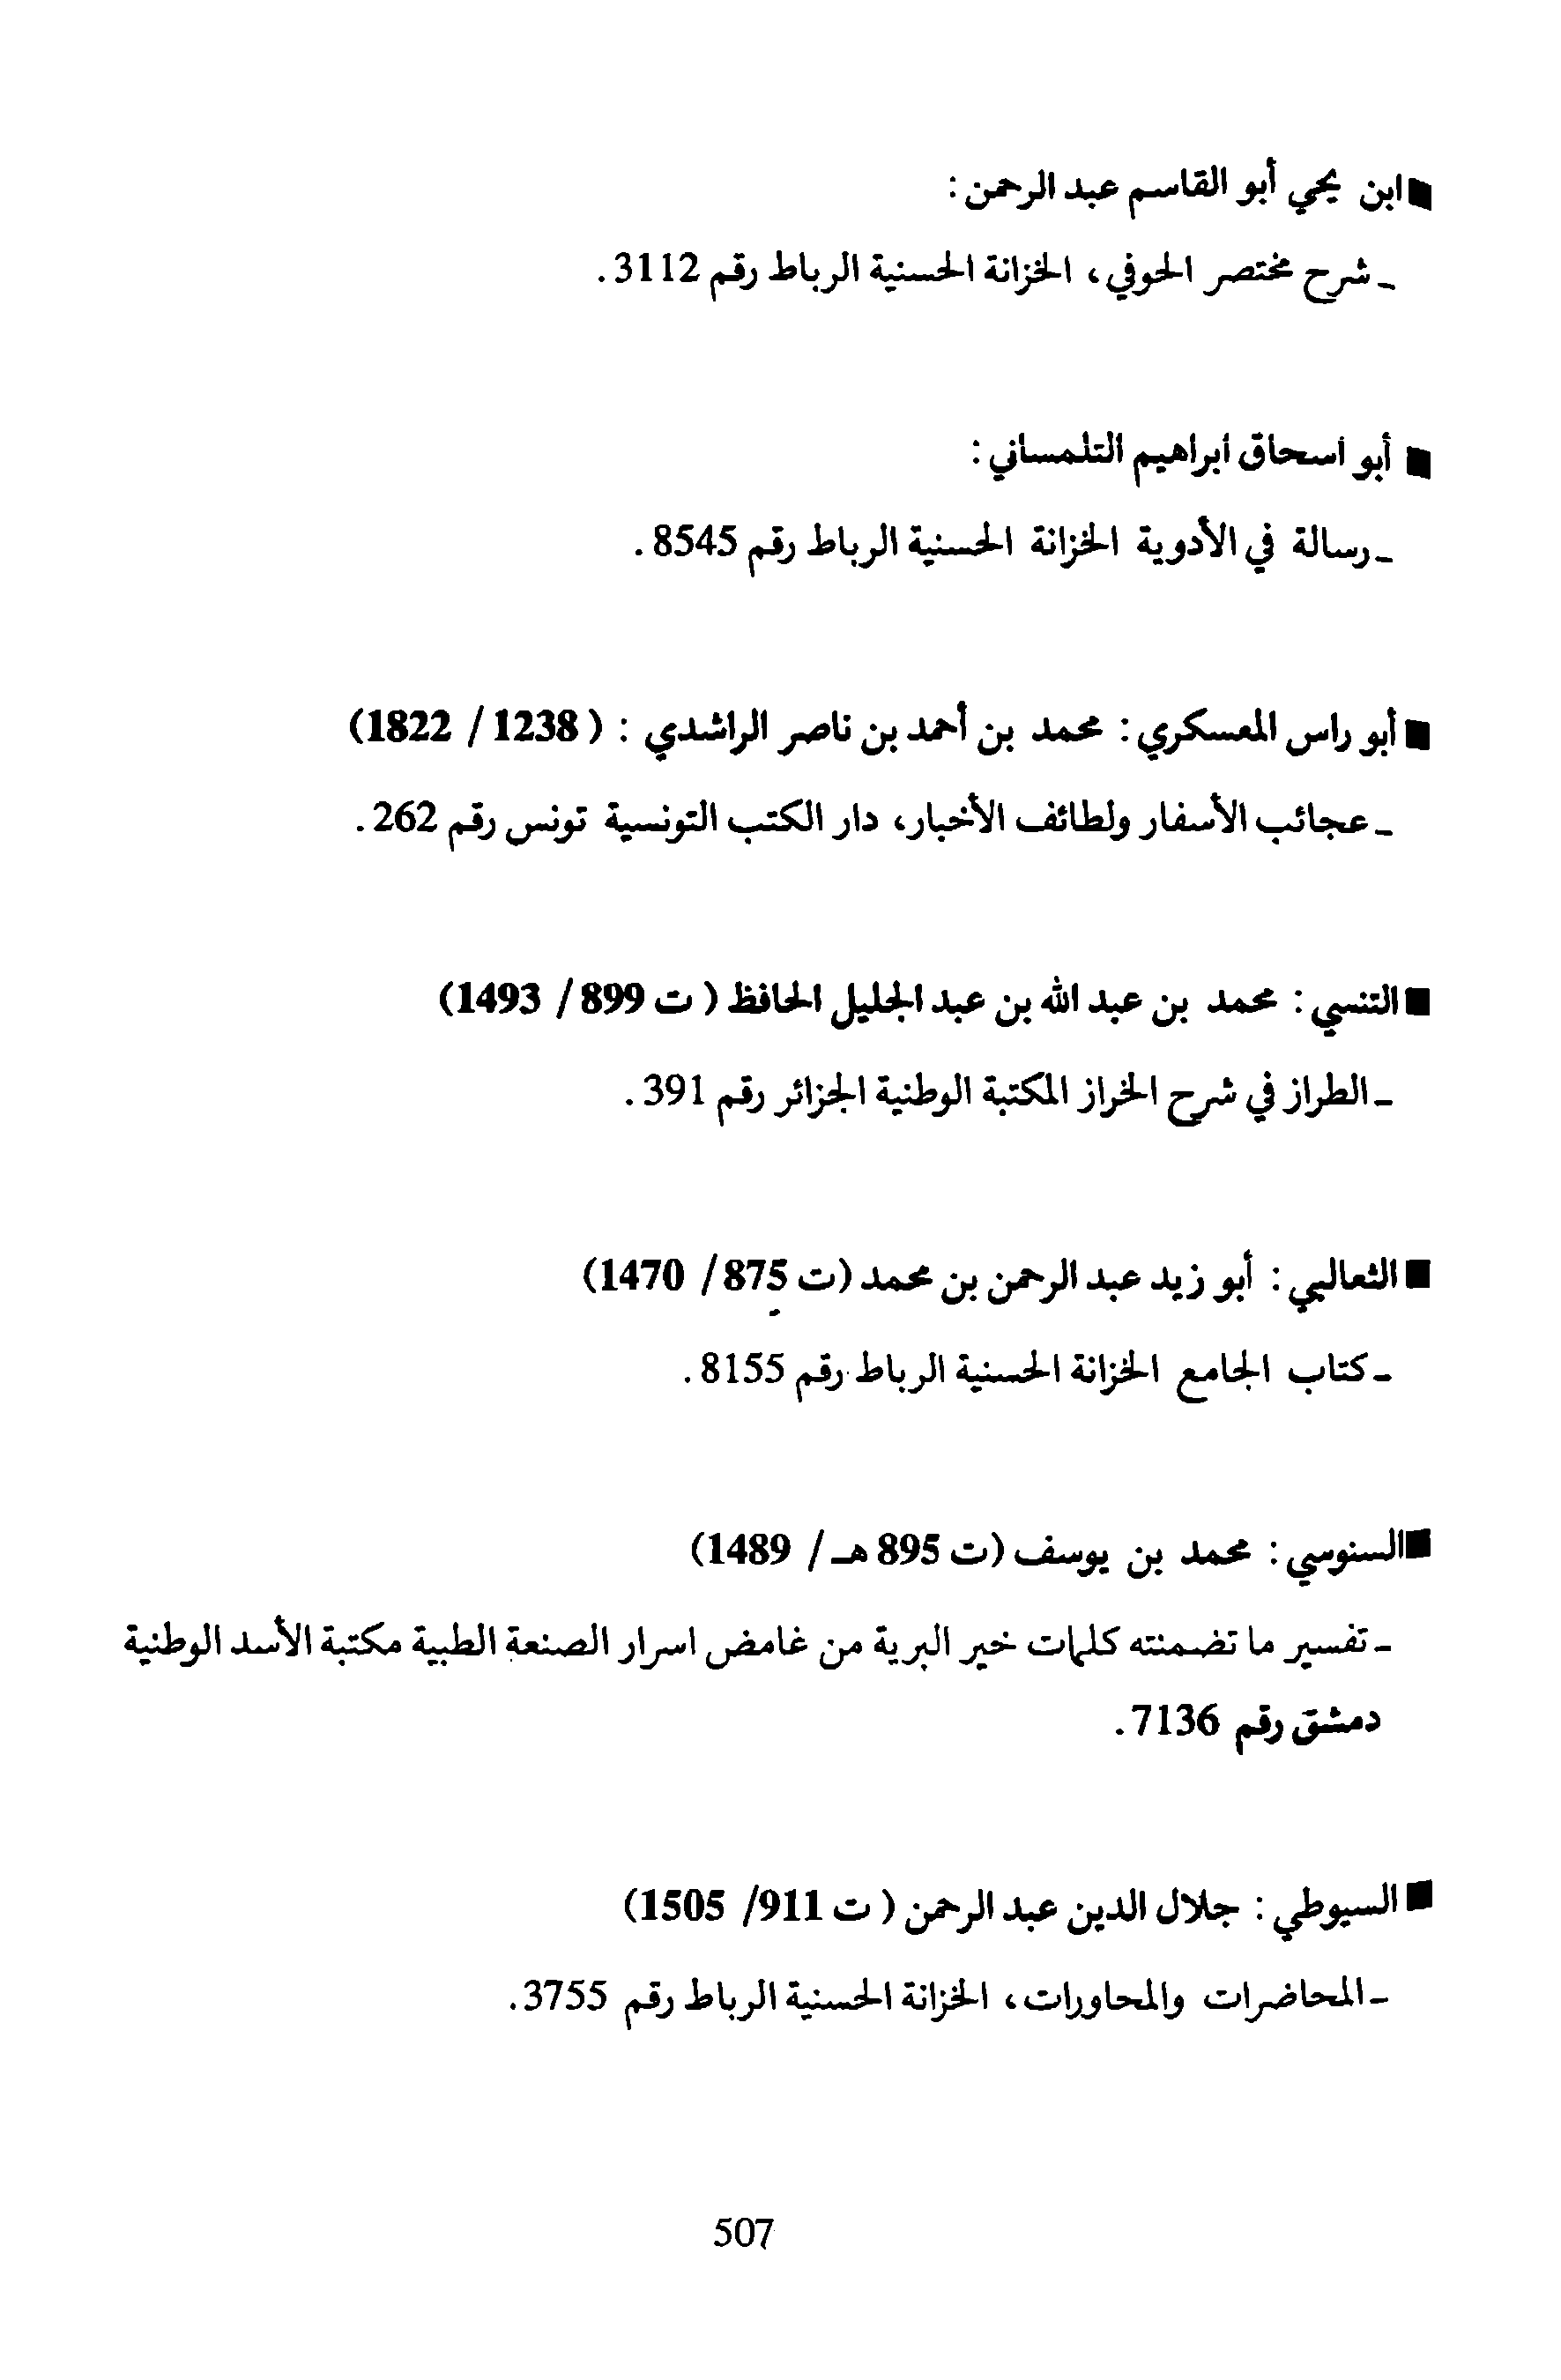 ■ ابن يحي أبو القاسم عبد الرحمن :
- شرح مختصر الحوفي، الخزانة الحسنية الرباط رقم 3112 .
■ أبو اسحاق ابراهيم التلمساني :
- رسالة في الأدوية الخزانة الحسنية الرباط رقم 8545 .
■ أبو راس المعسكري : محمد بن أحمد بن ناصر الراشدي : ( 1238 / 1822)
- عجائب الأسفار ولطائف الأخبار، دار الكتب التونسية تونس رقم 262 .
■ التنسي : محمد بن عبد الله بن عبد الجليل الحافظ ( ت 899 / 1493)
- الطراز في شرح الخراز المكتبة الوطنية الجزائر رقم 391 .
■ الثعالبي : أبو زيد عبد الرحمن بن محمد (ت 875 / 1470)
- كتاب الجامع الخزانة الحسنية الرباط رقم 8155 .
■ السنوسي : محمد بن يوسف (ت 895 هـ / 1489)
- تفسير ما تضمنته كلمات خير البرية من غامض اسرار الصنعة الطبية مكتبة الأسد الوطنية
دمشق رقم 7136 .
■ السيوطي : جلال الدين عبد الرحمن ( ت 911/ 1505)
- المحاضرات والمحاورات، الخزانة الحسنية الرباط رقم 3755.
507